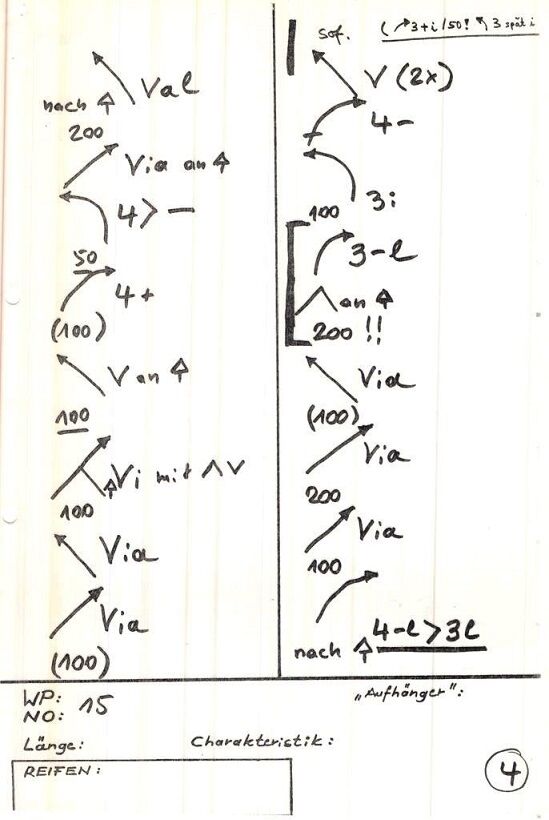 Val
nach
200
Via an
4 > —
50
4+
(100)
V an
100
Vi mit ∧ ∨
100
Via
Via
(100)
sof.
( 3+i /50! 3 spät i
V (2x)
4 –
3i
100
3-l
an
200 !!
Via
(100)
Via
200
Via
100
4-l > 3l
nach
WP:
NO: 15
„Aufhänger":
Länge:
Charakteristik:
REIFEN:
4